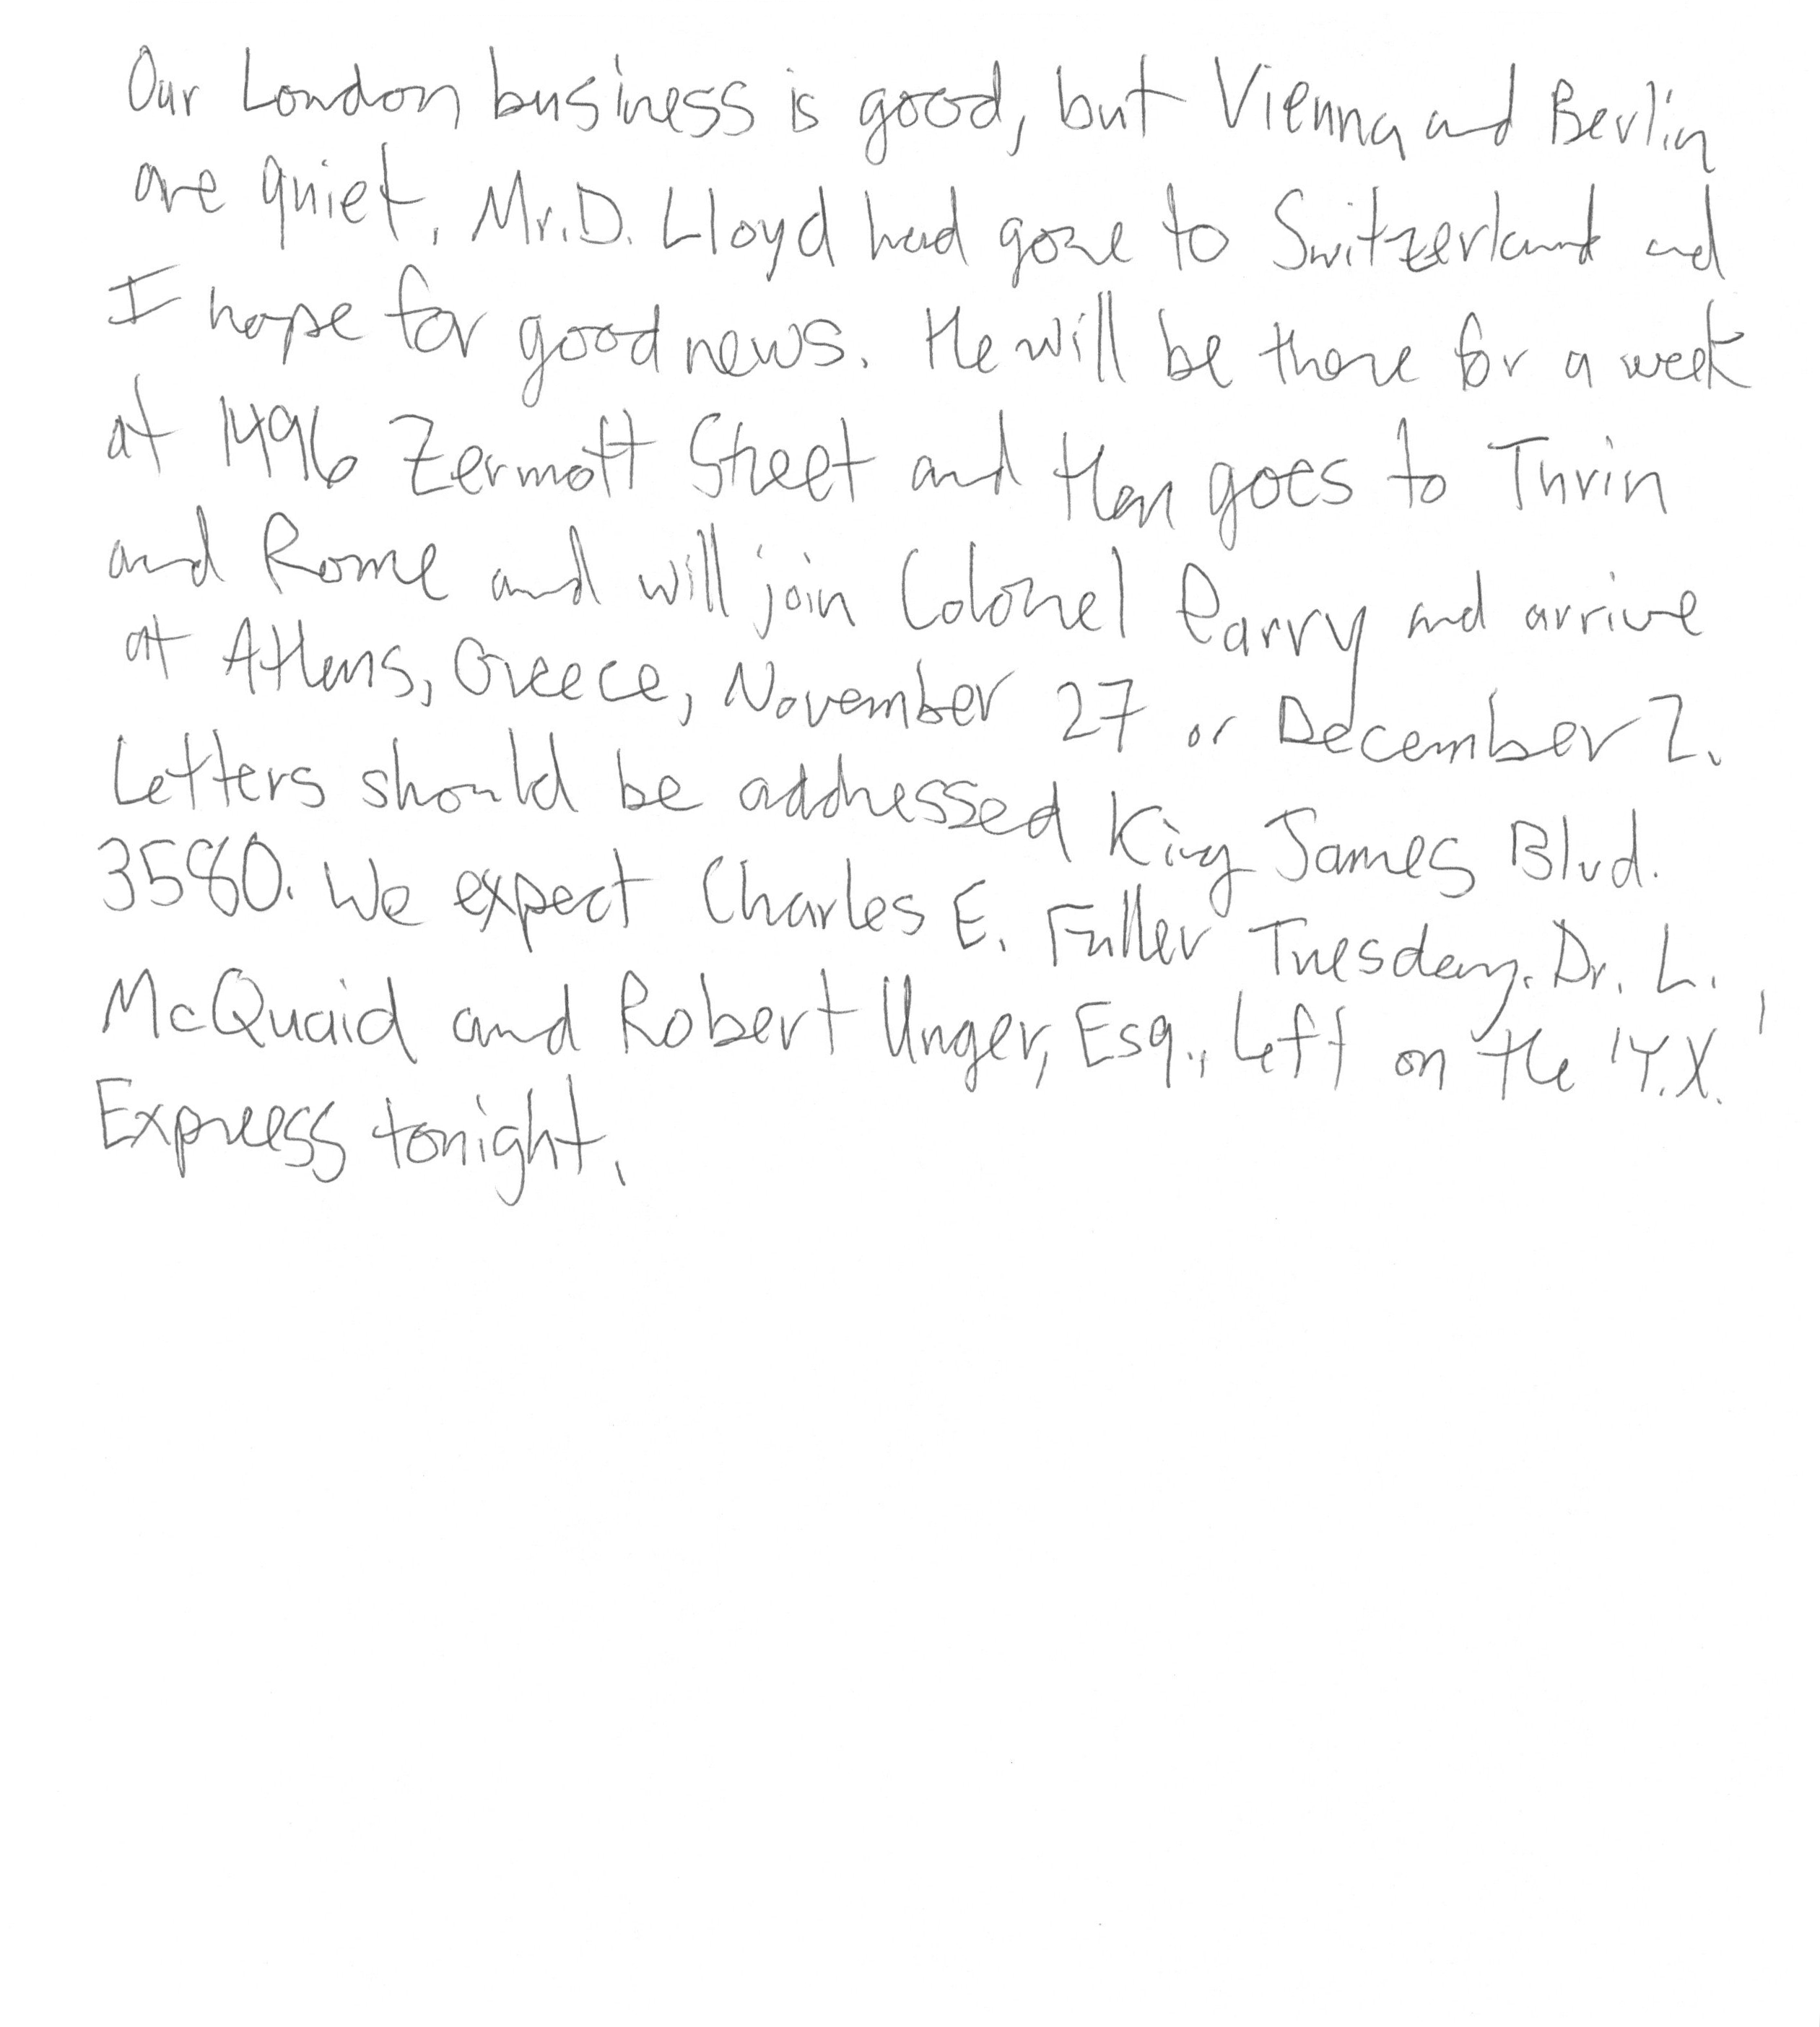 Our London business is good, but Vienna and Berlin
are quiet. Mr. D. Lloyd had gone to Switzerland and
I hope for good news. He will be there for a week
at 1496 Zermott Street and then goes to Turin
and Rome and will join Colonel Parry and arrive
at Athens, Greece, November 27 or December 2.
Letters should be addressed King James Blvd.
3580. We expect Charles E. Fuller Tuesday. Dr. L.
McQuaid and Robert Unger, Esq., left on the 'Y.X.'
Express tonight.